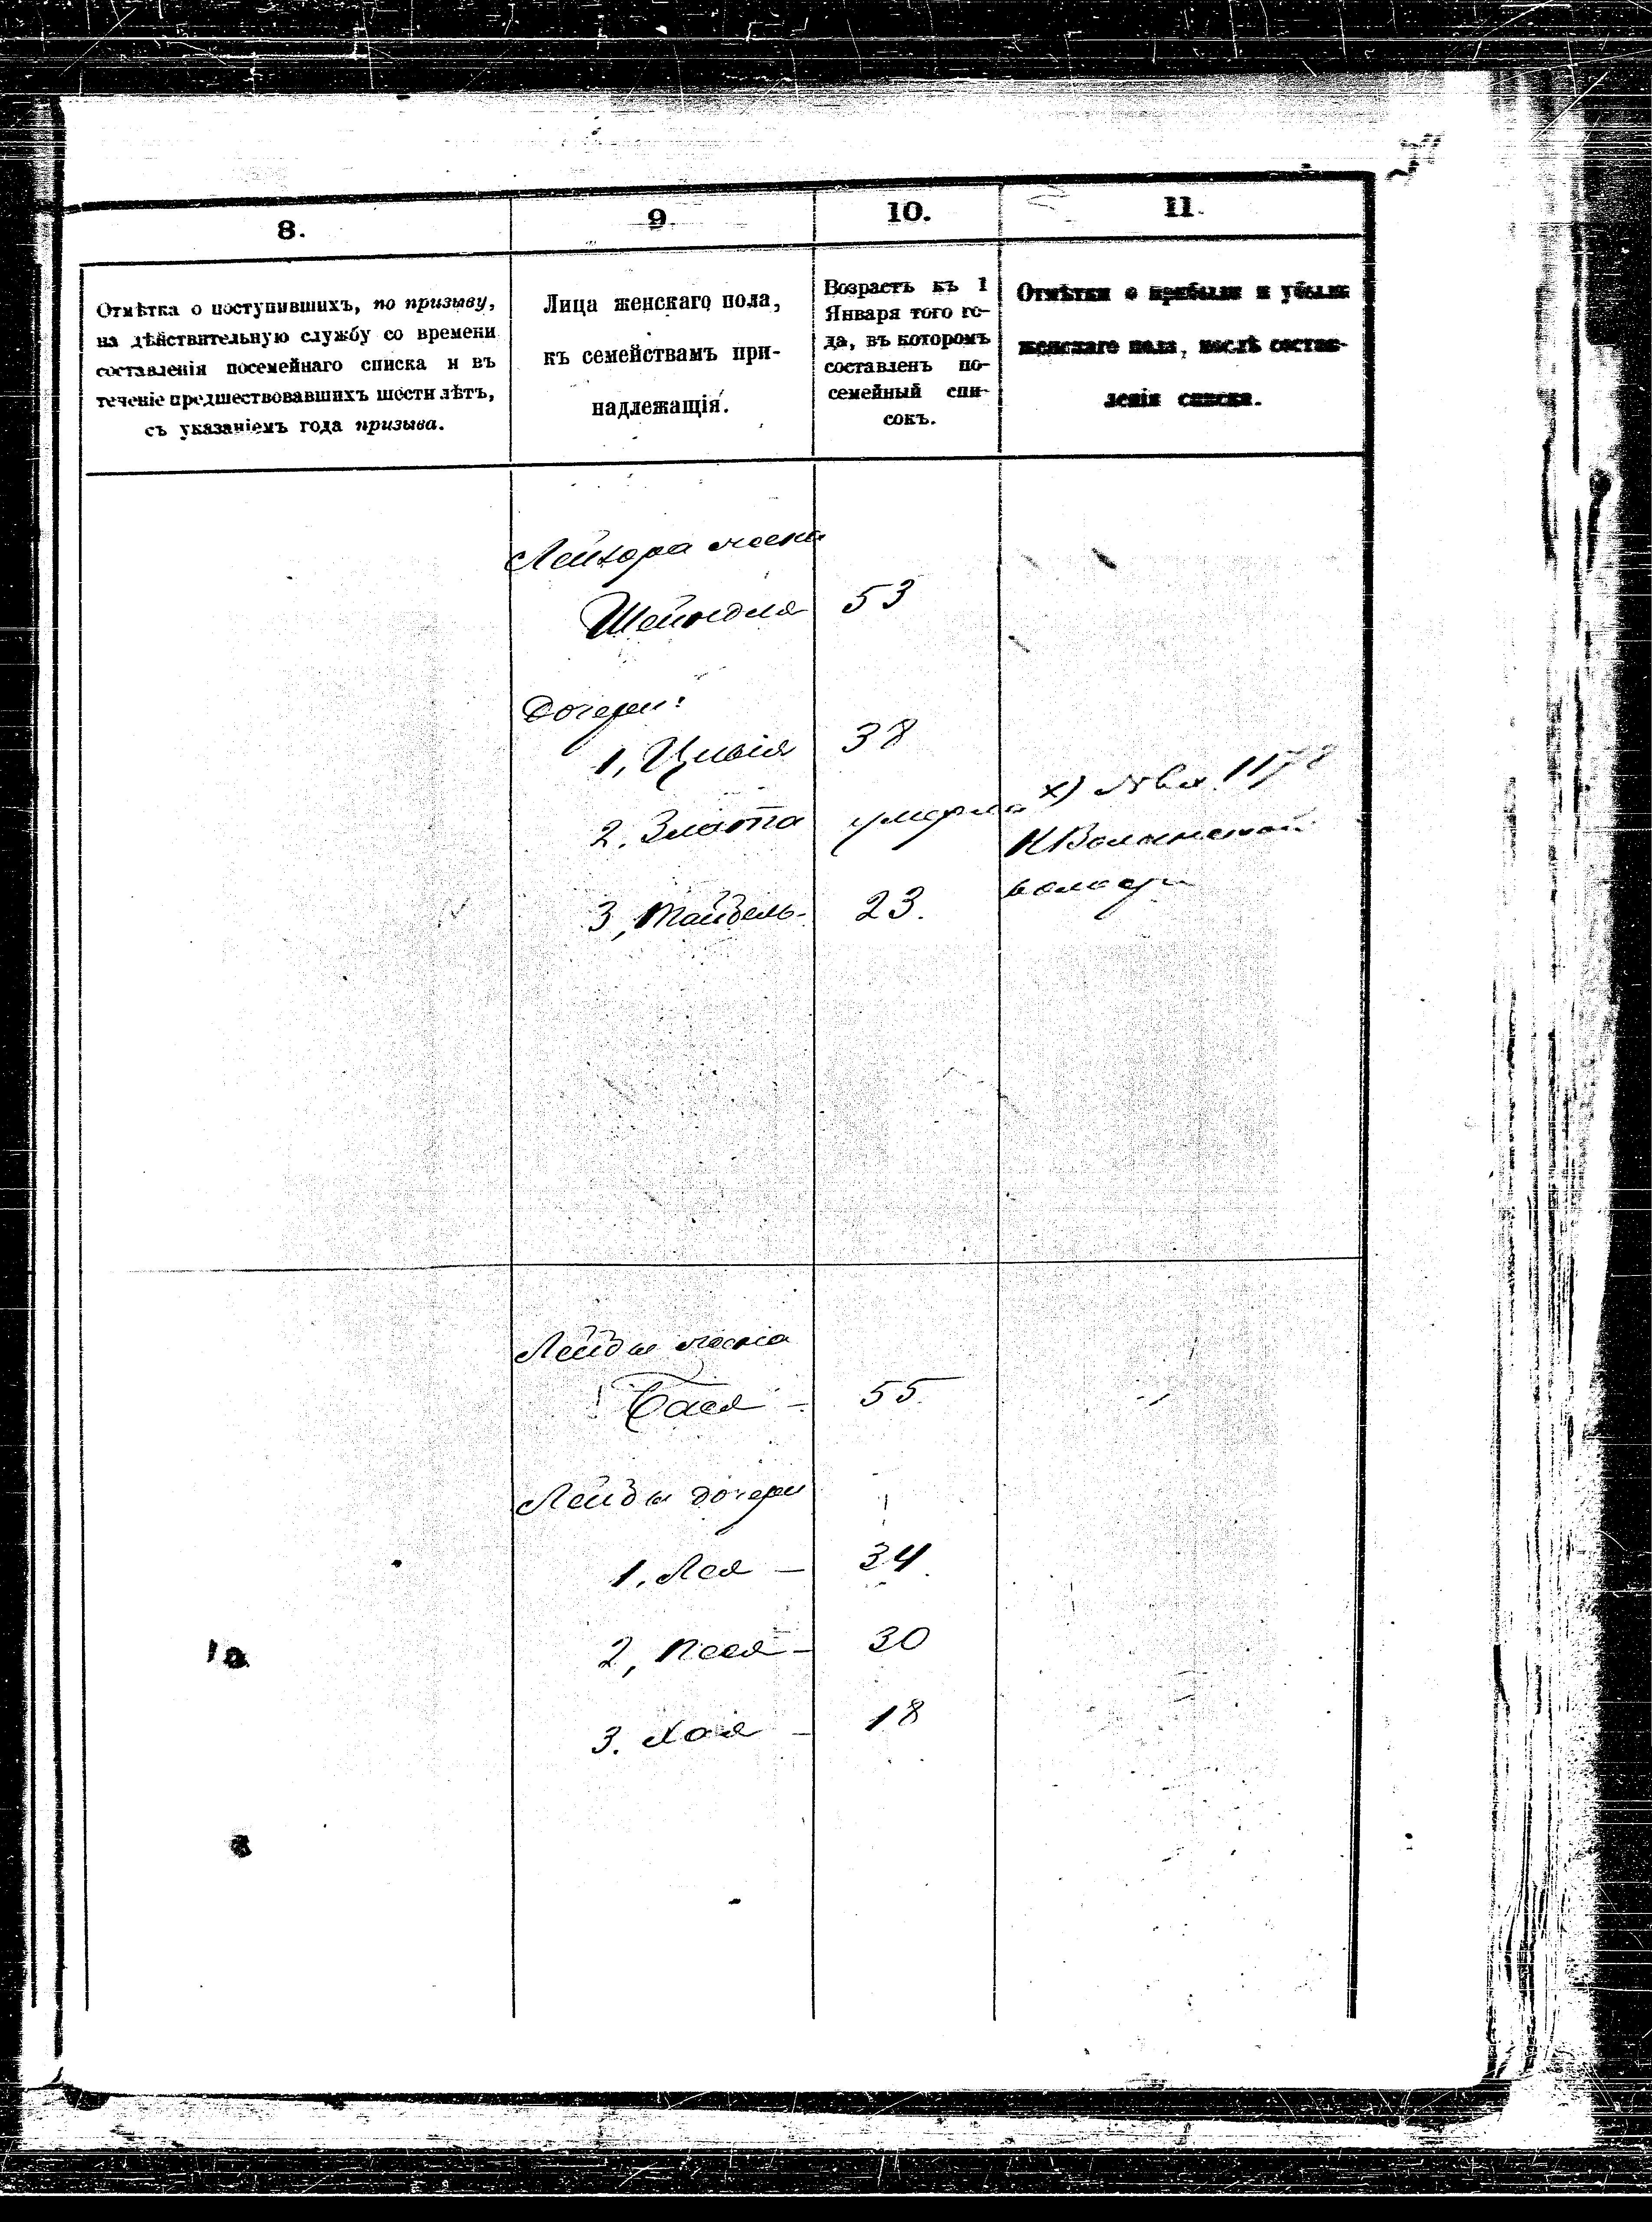 8.
9.
10.
11.
Отмѣтка о поступившихъ, по призыву,
на дѣйствительную службу со времени
составленія посемейнаго списка и въ
теченіе предшествовавшихъ шости лѣтъ,
съ указаніемъ года призыва.
Лица женскаго пола,
къ семействамъ при-
надлежащія.
Возрастъ къ 1
Января того го-
да, въ которомъ
составленъ по-
семейный спи-
сокъ.
Отмѣтки о прибыли и убыли
женскаго пола, послѣ состав-
ленія списка.
Лейзора жена
Шейндля 53
Дочери:
1, Цивія 38
2. Злата умерла
х) № вх. 1178
НВолынской
3, Тайбель 23.
Лейбы жена
Бася - 55
Лейбы дочери
1. Лея - 34
2, Песя - 30
3. Хая - 18